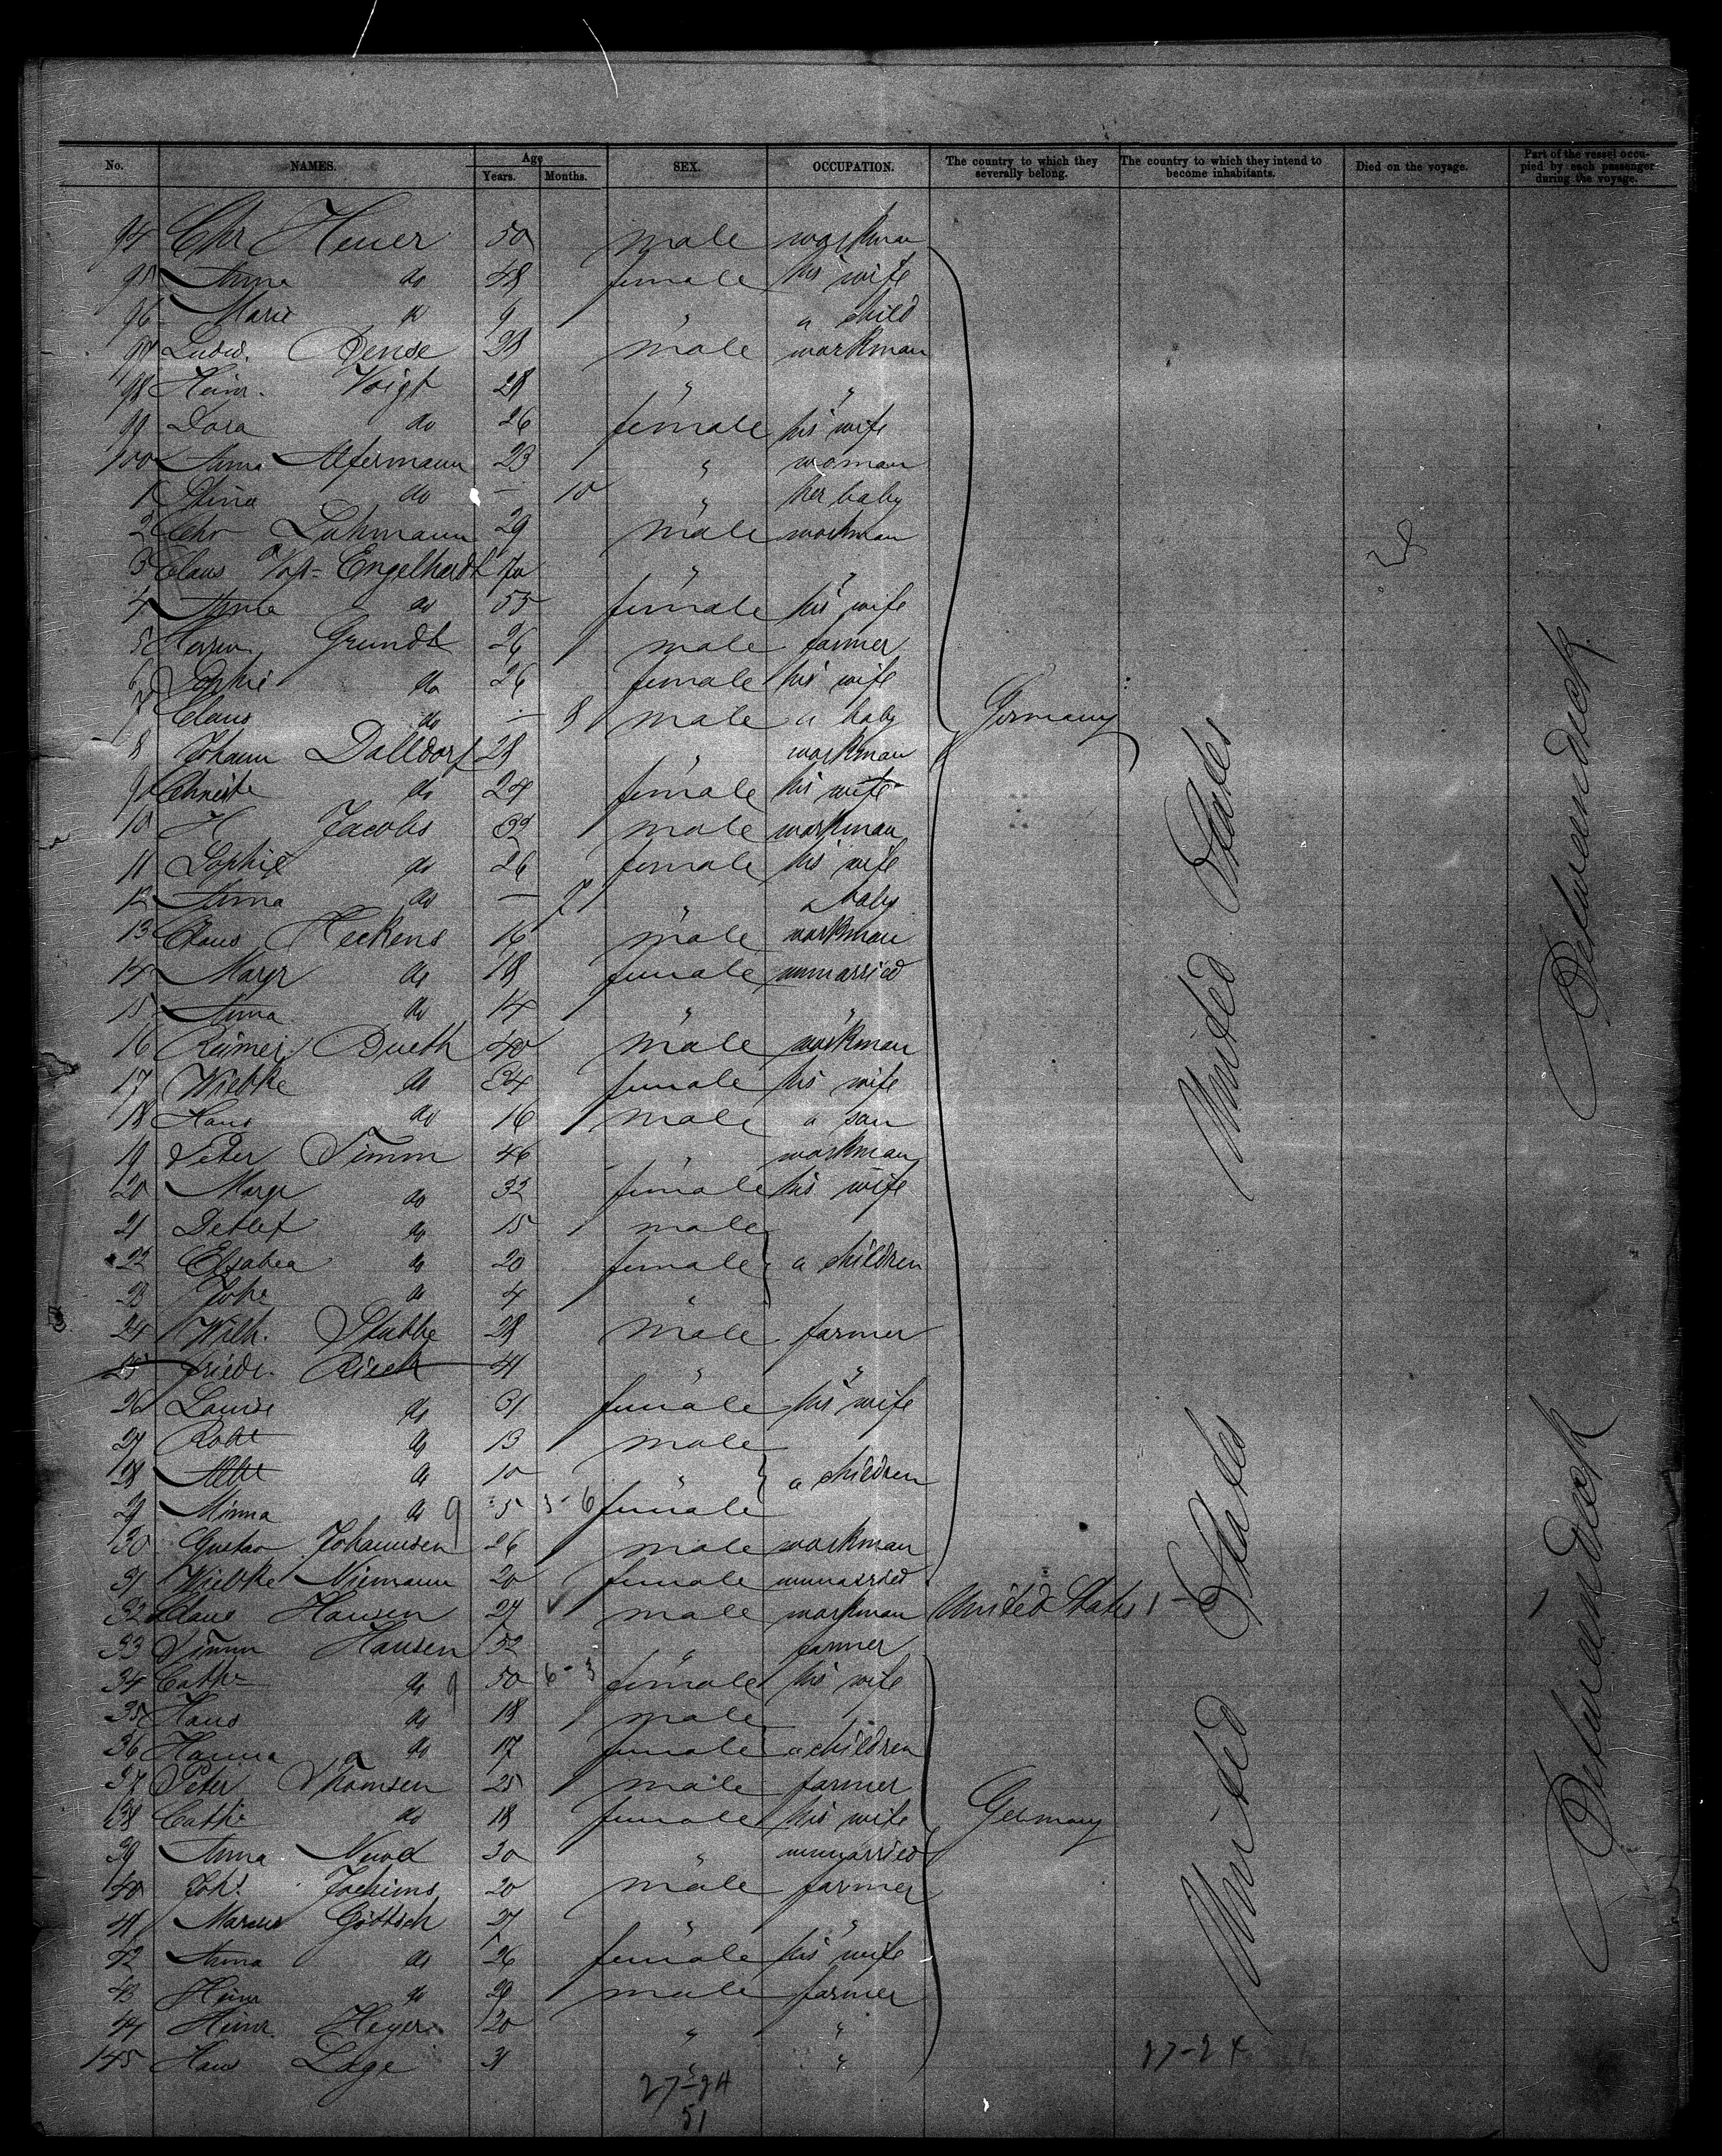 No. NAMES. Age Years. Months. SEX. OCCUPATION. The country to which they severally belong. The country to which they intend to become inhabitants. Died on the voyage. Part of the vessel occupied by each passenger during the voyage.
94 Chr Heuer 50 male workman
95 Anna do 48 female his wife
96 Marie do 9 " a child
97 Ludw. Dense 28 male workman
98 Heinr. Voigt 28 " "
99 Dora do 26 female his wife
100 Anna Alfermann 23 " woman
1 Stina do — 10 " her baby
2 Chr Luhmann 29 male workman
3 Claus Engelhardt 70 " "
4 Anna do 55 female his wife
5 Grundt 26 male farmer
6 Sophie do 26 female his wife
7 Claus do — 8 male a baby Germany
8 Johann Dalldorf 28 " workman
9 Christe do 24 female his wife
10 H Jacobs 32 male workman
11 Sophie do 26 female his wife
12 Anna do — 7 " a baby
13 Claus Heckens 16 male workman
14 Margr do 18 female unmarried
15 Anna do 14 " "
16 Rümer Dueth 40 male workman
17 Wiebke do 34 female his wife
18 Hans do 16 male a son
19 Peter Timm 46 " workman
20 Margr do 32 female his wife
21 Detlef do 15 male
22 Elsabea do 20 female a children
23 do 4 "
24 Wilh. Stubbe 28 male farmer
25 Friedr. Rieck 41 " "
26 Louise do 31 female his wife
27 Robt do 13 male
28 Albt do 10 " a children
29 Minna do 9 5 3-6 female
30 Gustav Johannsen 26 male workman
31 Wiebke Niemann 20 female unmarried
32 Claus Hansen 27 male workman United States
33 Timm Hansen 52 " farmer
34 Cathe do 9 50 6-3 female his wife
35 Hans do 18 male
36 Hanna do 17 female a children
37 Peter Thomsen 25 male farmer
38 Cathe do 18 female his wife Germany
39 Anna 30 " unmarried
40 Joh. Jochims 20 male farmer
41 Marcus Göttsch 27 " "
42 Anna do 26 female his wife
43 Heinr do 29 male farmer
44 Heinr. Heyer 20 " "
145 Hans Lage 31 " "
United States
United States
Betweendeck
Betweendeck
27-24
27-24
51